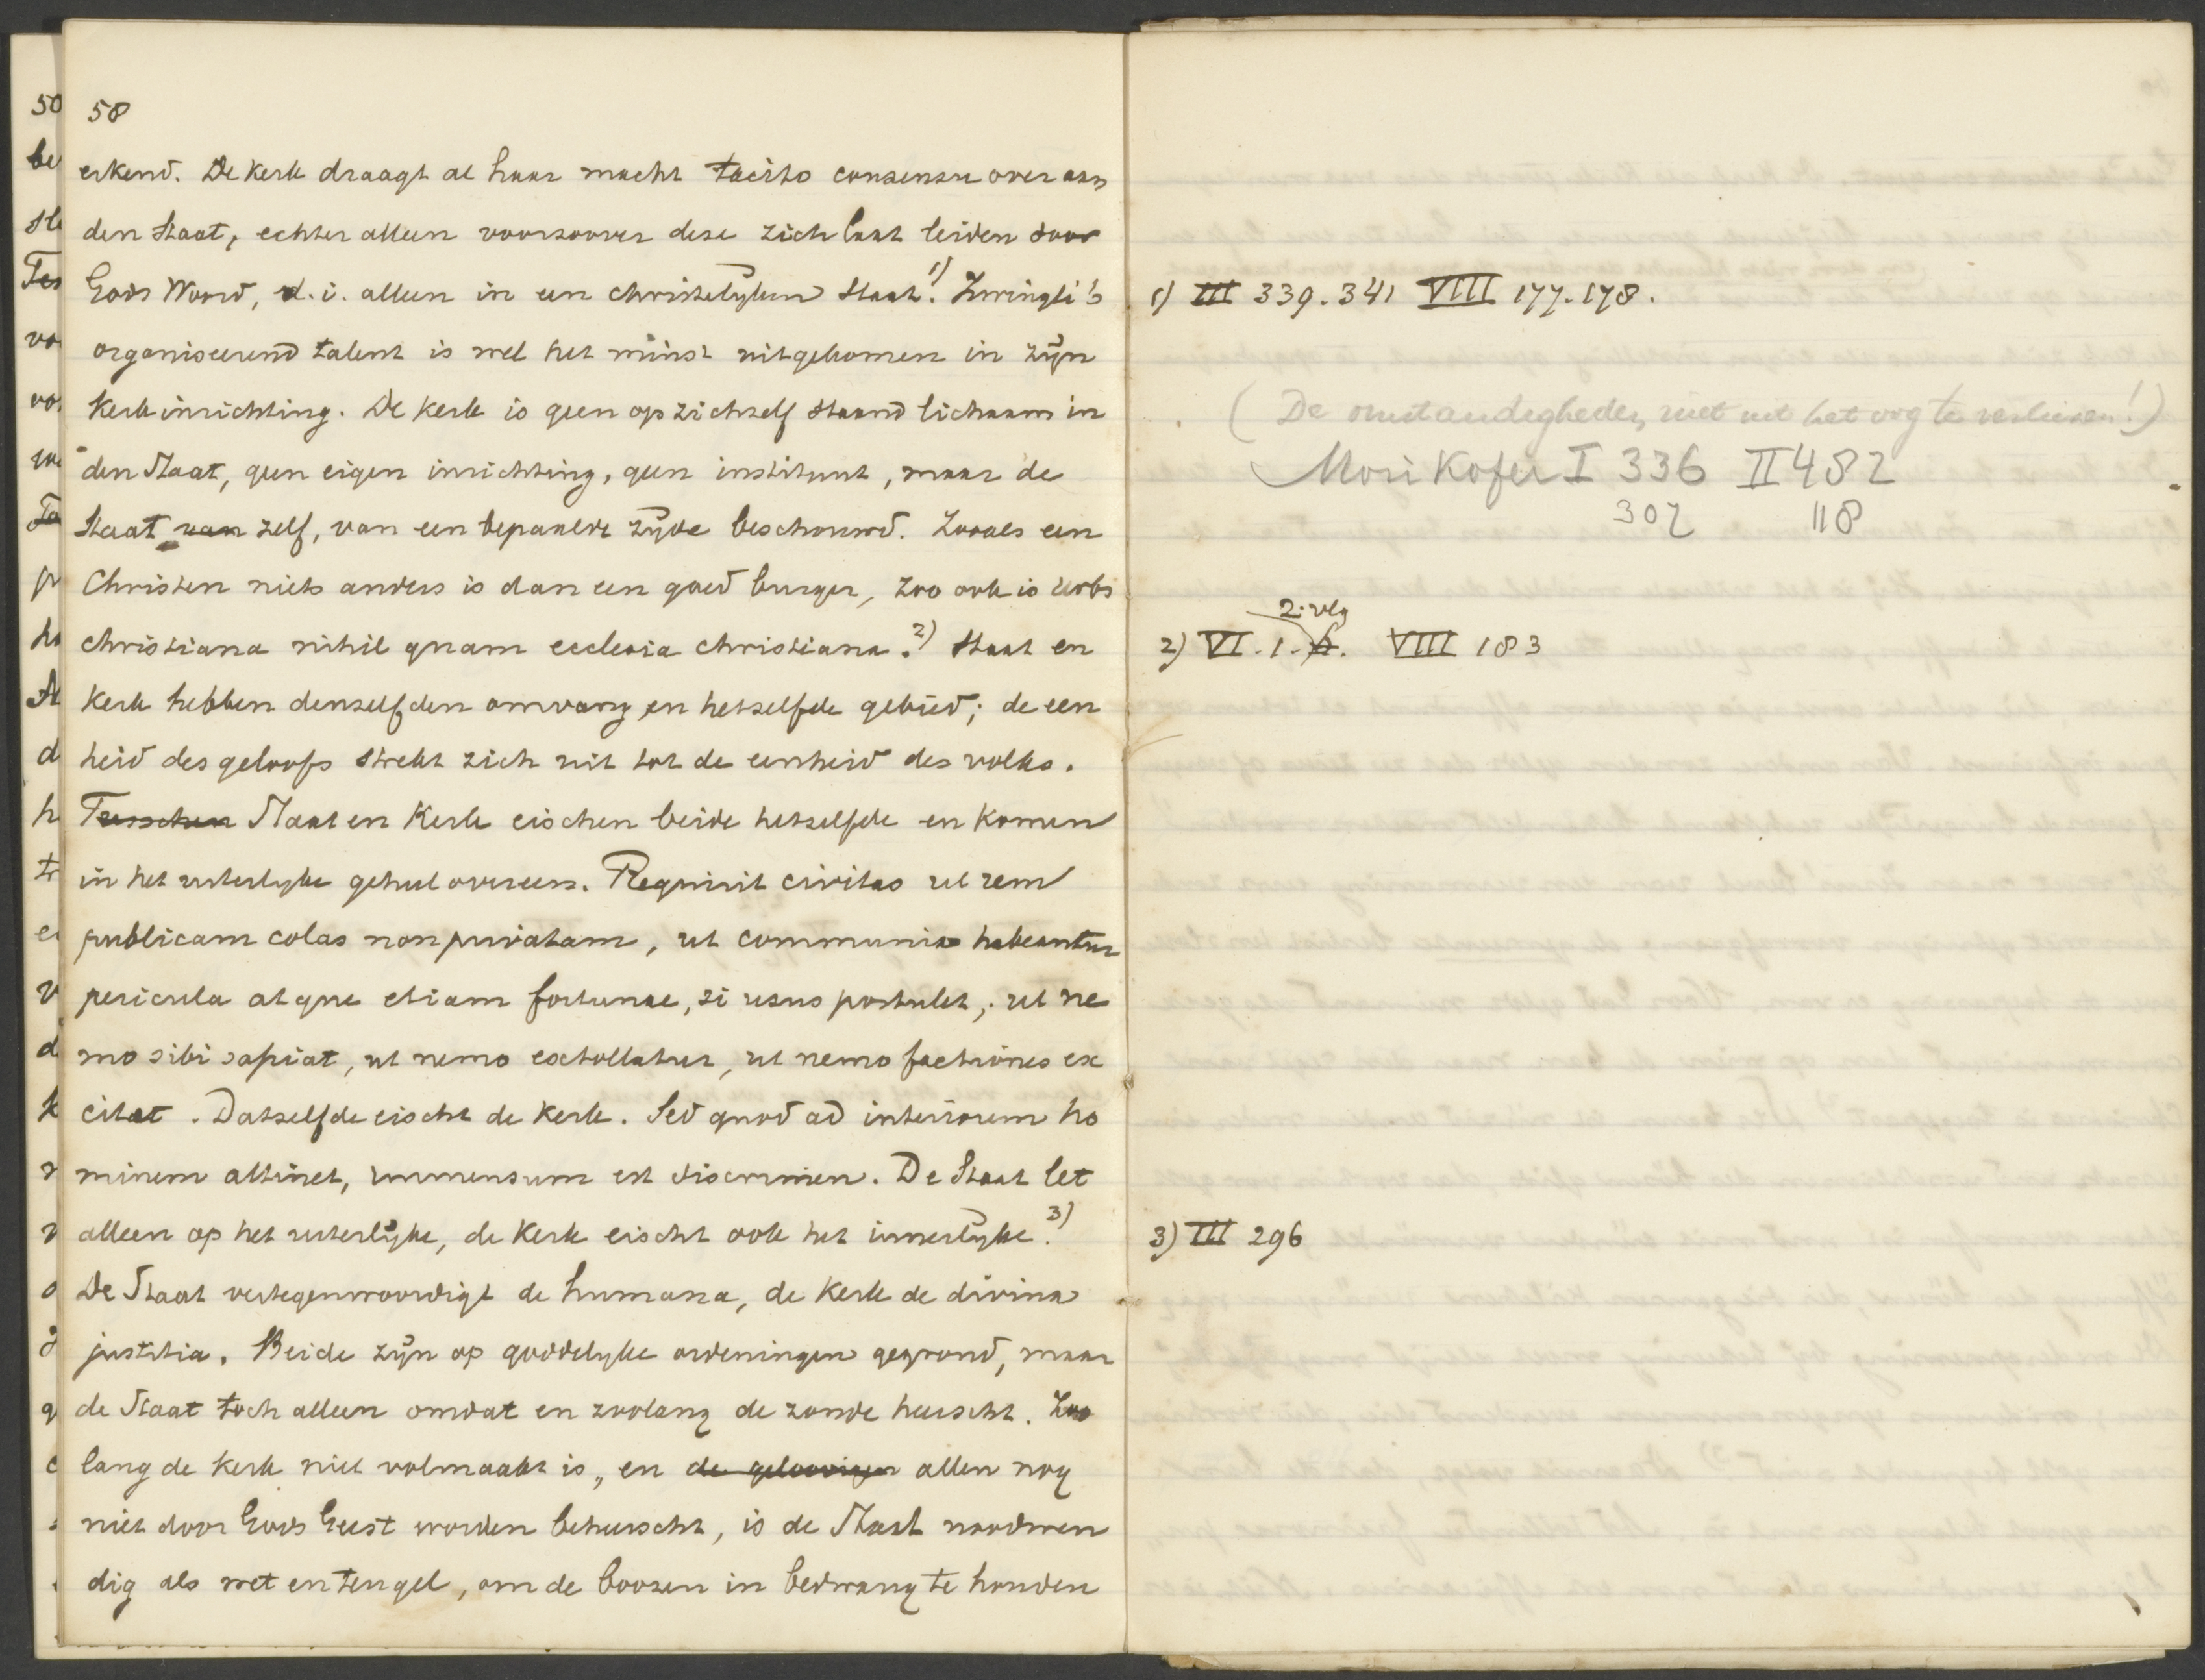 58
erkend. De kerk draagt al haar macht tacito consensu over aan
den Staat, echter alleen voorzoover deze zich laat leiden door
Gods Woord, d.i. alleen in een christelijken Staat.1) Zwingli's
organiseerend talent is wel het minst uitgekomen in zijn
Kerkinrichting. De kerk is geen op zichzelf staand lichaam in
den Staat, geen eigen inrichting, geen instituut, maar de
Staat van zelf, van een bepaalde zijde beschouwd. Zooals een
Christen niets anders is dan een goed burger, zoo ook is urbs
christiana nihil quam ecclesia christiana.2) Staat en
Kerk hebben denzelfden omvang en hetzelfde gebied; de een
heid des geloofs strekt zich uit tot de eenheid des volks.
Tusschen Staat en Kerk eischen beide hetzelfde en komen
in het uiterlijke geheel overeen. Requirit civitas ut rem
publicam colas non privatam, ut communia habeantur
pericula atque etiam fortunae, si usus postulet; ut ne
mo sibi sapiat, ut nemo extollatur, ut nemo factiones ex
citet. Datzelfde eischt de Kerk. Sed quod ad interiorem ho
minem attinet, immensum est discrimen. De Staat let
alleen op het uiterlijke, de Kerk eischt ook het innerlijke.3)
De Staat vertegenwoordigt de humana, de Kerk de divina
justitia. Beide zijn op goddelijke ordeningen gegrond, maar
de Staat toch alleen omdat en zoolang de zonde heerscht. Zoo
lang de Kerk niet volmaakt is, en de geloovigen allen nog
niet door Gods Geest worden beheerscht, is de Staat noodwen
dig als wet en teugel, om de boozen in bedwang te houden
1) III 339. 341 VIII 177. 178.
(De omstandigheden niet uit het oog te verliezen!)
Morikofer I 336 II 482
307 118
2. vlg
2) VI. 1. VIII 183
3) III 296